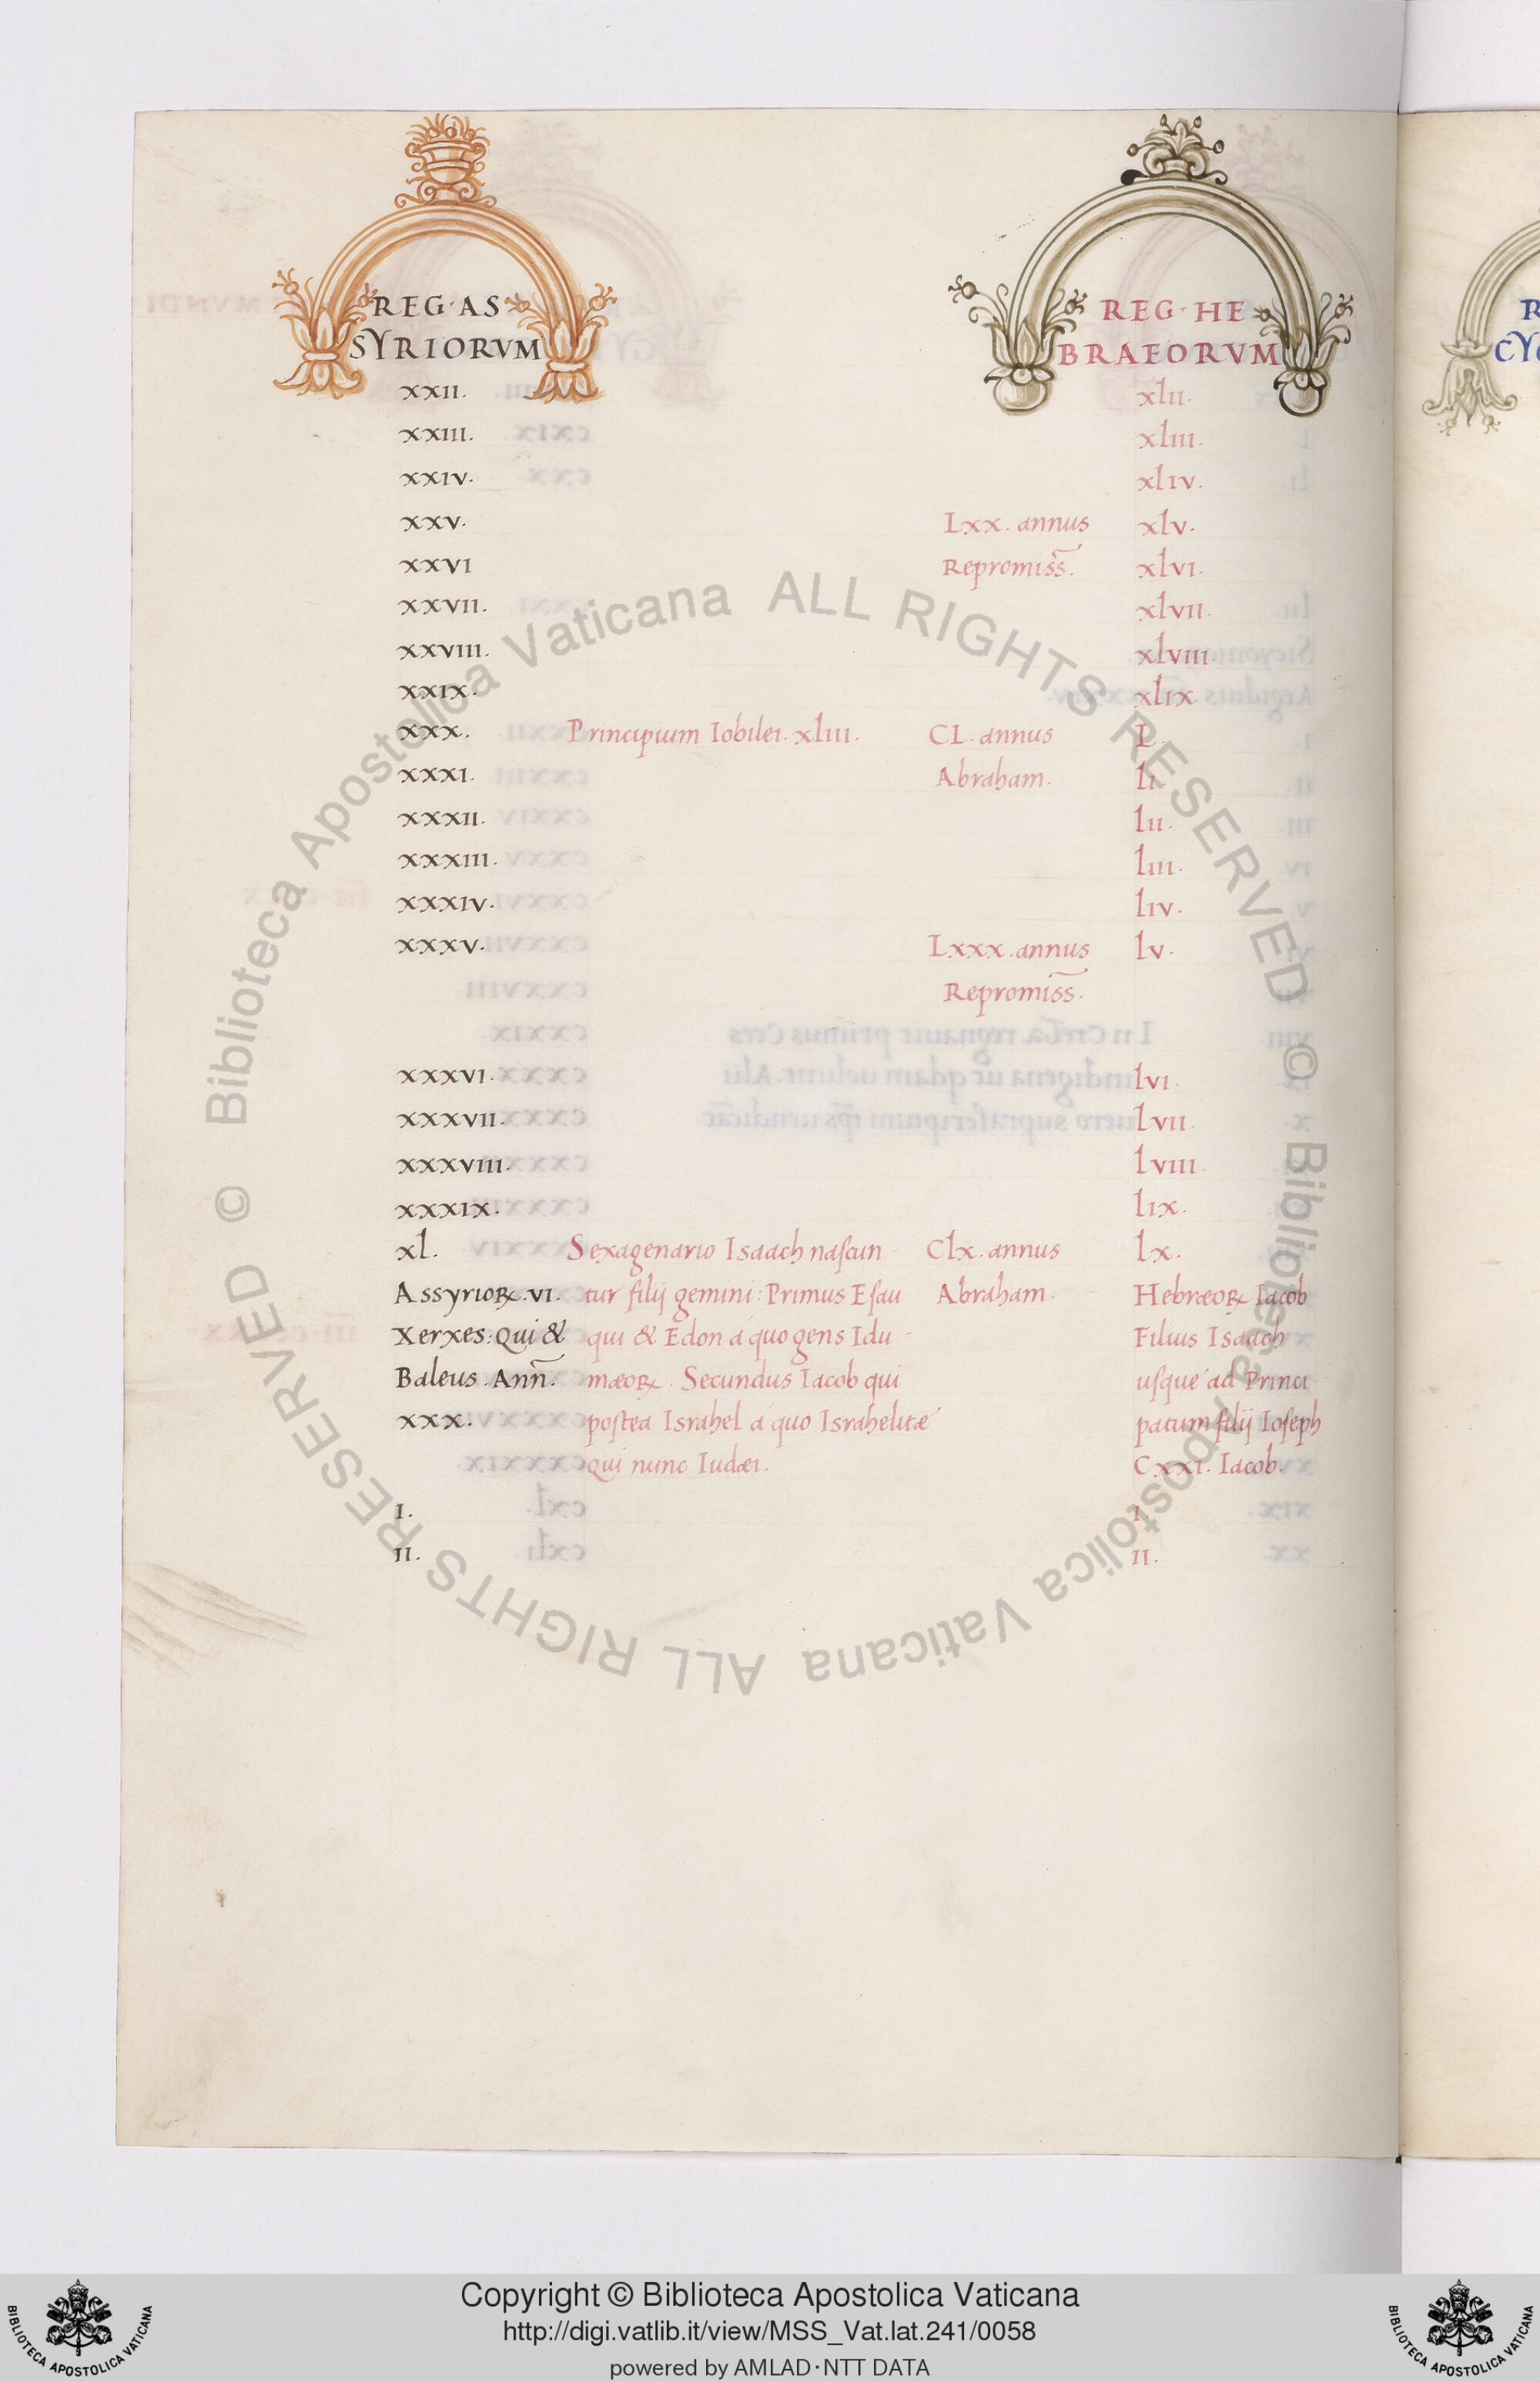 REG·AS
SYRIORVM
REG·HE
BRAEORVM
XXII. xlii.
XXIII. xliii.
XXIV. xliv.
XXV. Lxx. annus xlv.
XXVI Repromiss̃. xlvi.
XXVII. xlvii.
XXVIII. xlviii
XXIX. xlix.
XXX. Principium Iobilei. xliii. CL. annus L.
XXXI. Abraham. li
XXXII. lii.
XXXIII. liii.
XXXIV. liv.
XXXV. Lxxx. annus lv.
Repromiss̃.
XXXVI. lvi.
XXXVII. lvii.
XXXVIII. lviii.
XXXIX. lix.
xl. Sexagenario Isaach naſcun Clx. annus lx.
Assyrioꝝ. VI. tur filij gemini: Primus Eſau Abraham. Hebræoꝝ Iacob
Xerxes: Qui & qui & Edon á quo gens Idu- Filius Isaach
Baleus. Ann̄. mæoꝝ. Secundus Iacob qui uſque ad Princi
XXX. poſtea Israhel á quo Israhelitæ patum filij Ioſeph
qui nunc Iudæi. Cxxi. Iacob.
I. I.
II. II.
© Biblioteca Apostolica Vaticana ALL RIGHTS RESERVED © Biblioteca Apostolica Vaticana ALL RIGHTS RESERVED
Copyright © Biblioteca Apostolica Vaticana
http://digi.vatlib.it/view/MSS_Vat.lat.241/0058
powered by AMLAD·NTT DATA
BIBLIOTECA APOSTOLICA VATICANA
BIBLIOTECA APOSTOLICA VATICANA